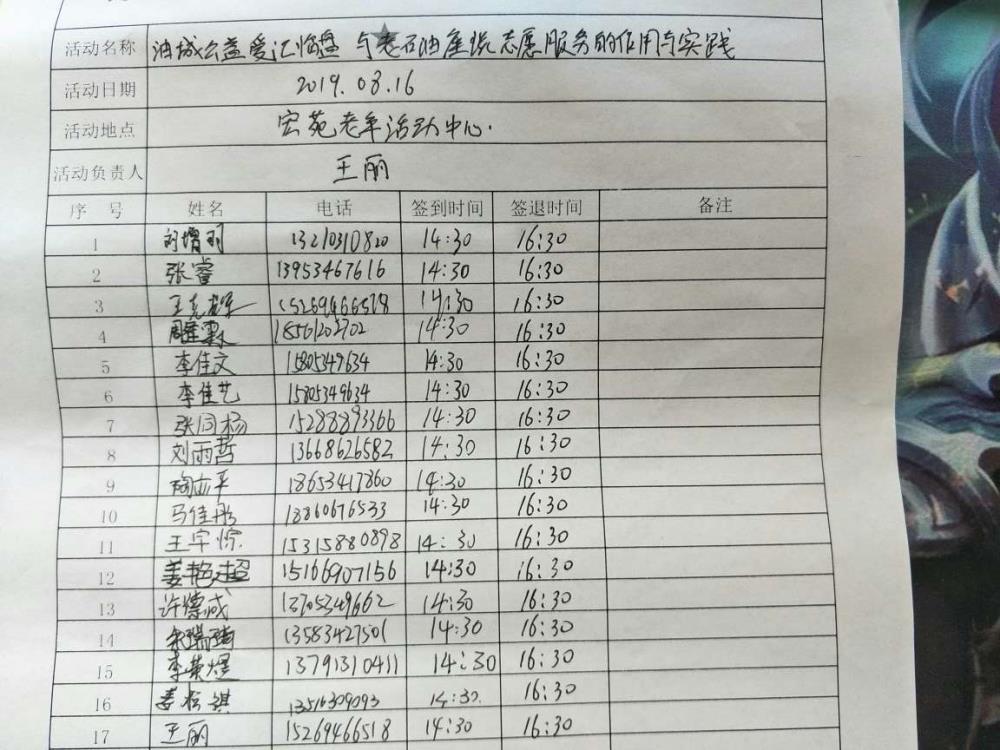 活动名称 油城公益爱汇临盘 与老石油座谈志愿服务的作用与实践
活动日期 2019.03.16
活动地点 宏苑老年活动中心.
活动负责人 王丽
序号 姓名 电话 签到时间 签退时间 备注
1 13210310820 14:30 16:30
2 张睿 13953467616 14:30 16:30
3 15269466518 14:30 16:30
4 18561202702 14:30 16:30
5 李佳文 15805349634 14:30 16:30
6 李佳艺 15805349634 14:30 16:30
7 张同杨 15288893366 14:30 16:30
8 刘雨哲 13668626582 14:30 16:30
9 陶亦平 18653417860 14:30 16:30
10 马佳彤 18860676533 14:30 16:30
11 王宇惊 15315880898 14:30 16:30
12 姜艳超 15166907156 14:30 16:30
13 许德成 13705349662 14:30 16:30
14 宋瑞琦 13583427501 14:30 16:30
15 李荣煜 13791310411 14:30 16:30
16 姜松祺 13516309093 14:30. 16:30
17 王丽 15269466518 14:30 16:30